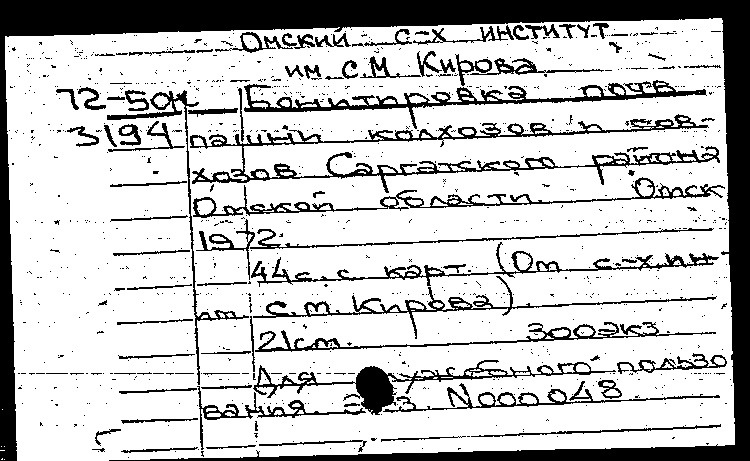 Омский с-х институт
им. С.М. Кирова
72-50к Бонитировка почв
3194 пашни колхозов и сов-
хозов Саргатского района
Омской области. Омск
1972.
44с. с карт. (Ом с.-х. ин-
т им. С.М. Кирова)
21см. 300экз.
Для служебного пользо
вания. Экз. N000048